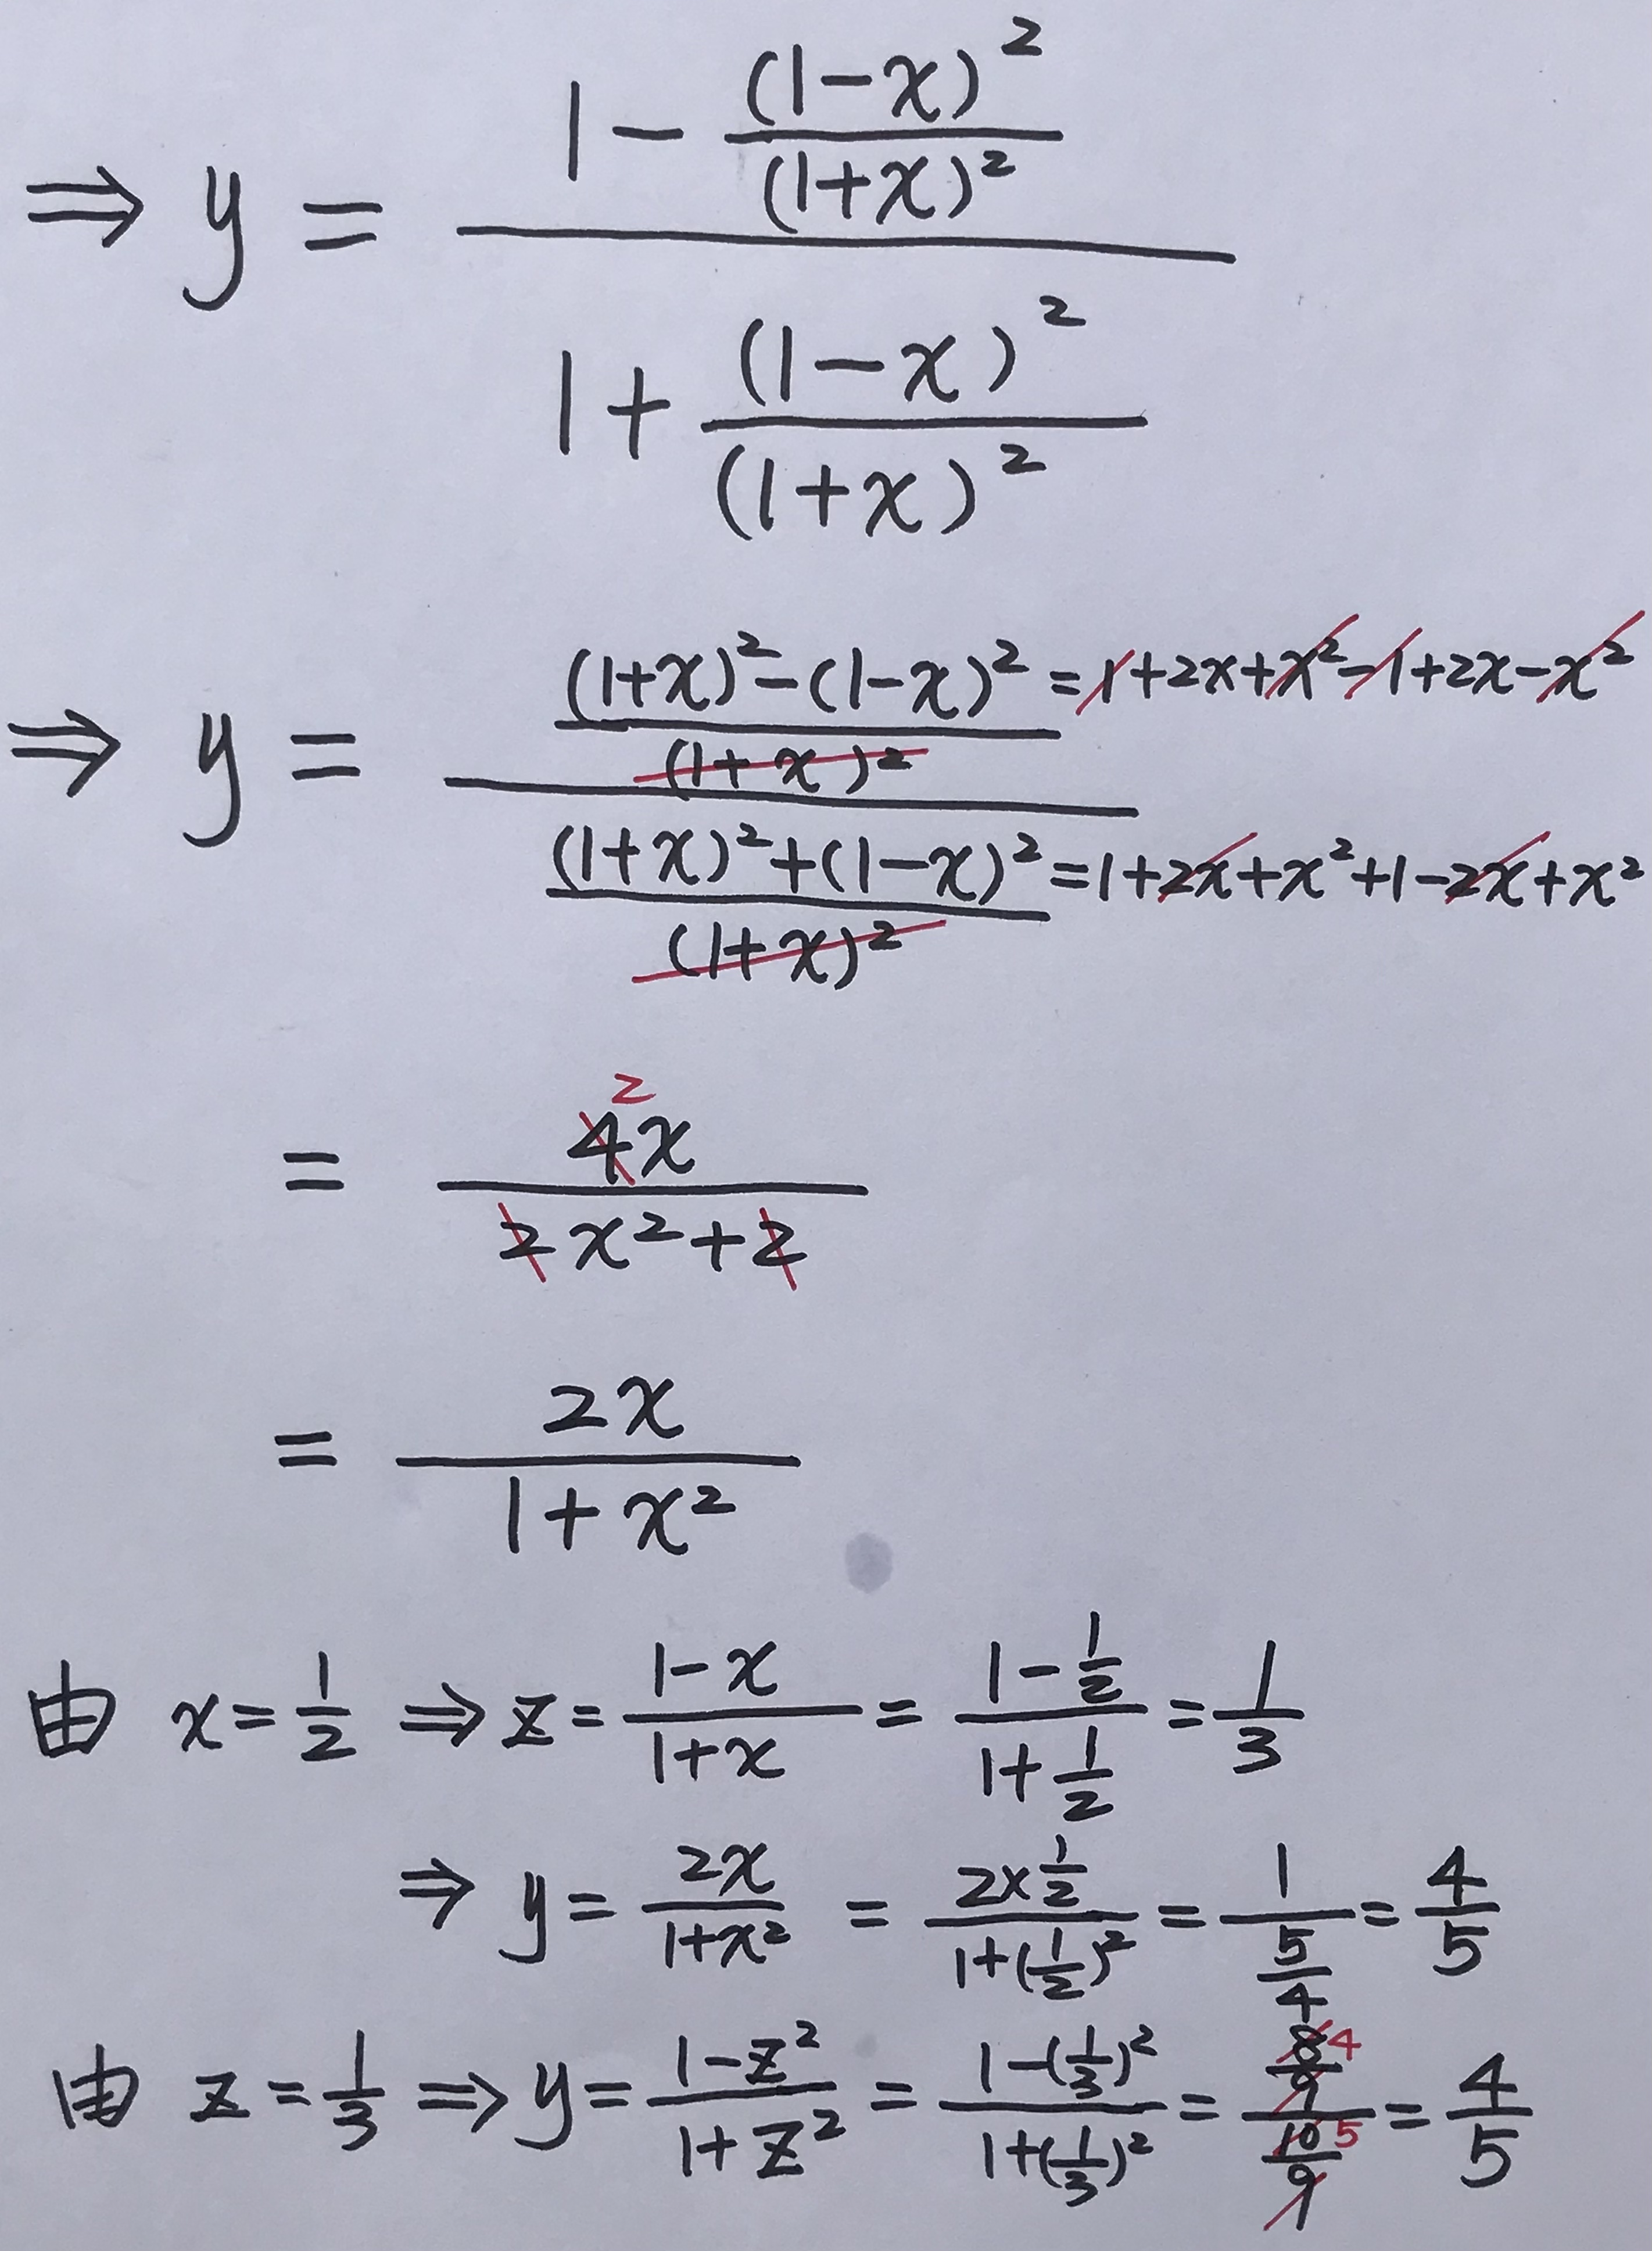 ⇒ y = \frac{1-\frac{(1-x)^2}{(1+x)^2}}{1+\frac{(1-x)^2}{(1+x)^2}}
⇒ y = \frac{\frac{(1+x)^2-(1-x)^2}{(1+x)^2}}{\frac{(1+x)^2+(1-x)^2}{(1+x)^2}}
=1+2x+x^2-1+2x-x^2
=1+2x+x^2+1-2x+x^2
2
= \frac{4x}{2x^2+2}
= \frac{2x}{1+x^2}
由 x=\frac{1}{2} ⇒ z=\frac{1-x}{1+x}=\frac{1-\frac{1}{2}}{1+\frac{1}{2}}=\frac{1}{3}
⇒ y=\frac{2x}{1+x^2}=\frac{2×\frac{1}{2}}{1+(\frac{1}{2})^2}=\frac{1}{\frac{5}{4}}=\frac{4}{5}
由 z=\frac{1}{3} ⇒ y=\frac{1-z^2}{1+z^2}=\frac{1-(\frac{1}{3})^2}{1+(\frac{1}{3})^2}=\frac{\frac{8}{9}}{\frac{10}{9}}=\frac{4}{5}
4
5